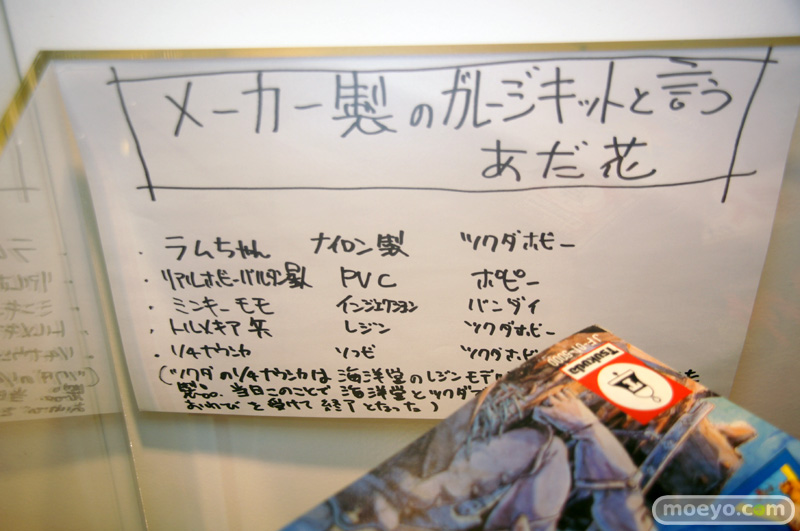 メーカー製のガレージキットと言う
あだ花
・ラムちゃん ナイロン製 ツクダホビー
・リアルホビーバルタン星人 PVC ポピー
・ミンキーモモ インジェクション バンダイ
・トルメキア兵 レジン ツクダホビー
・1/4ナウシカ ソフビ ツクダホビ
(ツクダの1/4ナウシカは海洋堂のレジンモデ
製品。当日このことで海洋堂とツクダ
おわびを受けて終了となった)
Tsukuda
moeyo.com